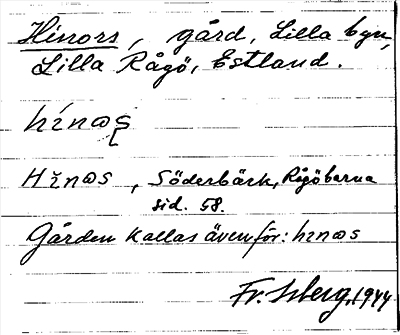 Hinors, gård, Lilla byn,
Lilla Rågö, Estland.
hínɷʂ
Hĭnɷs, Söderbäck, Rågöbarna
sid. 58.
Gården kallas även för: hɪnɷs
Fr. Isberg, 1944